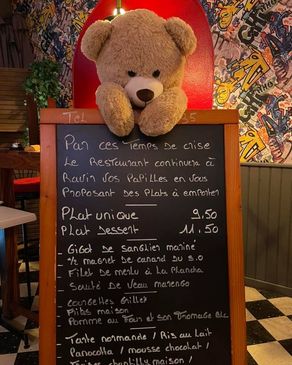 Tel 25
Par ces temps de crise
Le Restaurant continuera à
Ravir vos Papilles en vous
Proposant des Plats à emporter
PLat unique 9,50
PLat Dessert 11,50
- Gigot de sanglier mariné
- ½ magret de canard du S.O
- Filet de merlu à la Plancha
- Sauté de Veau marengo
- Courgettes Grillet
- P'tits maison
- Pomme au Four et son Fromage Blc
- Tarte normande / Ris au Lait
Panacotta / mousse chocolat /
chantilly maison /